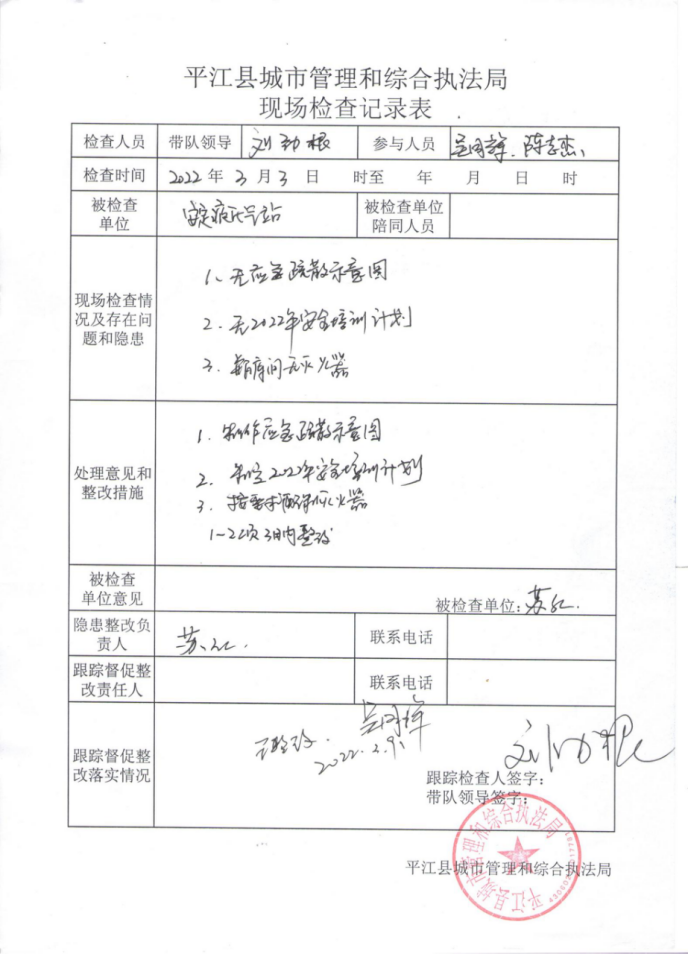 平江县城市管理和综合执法局
现场检查记录表
检查人员 带队领导 刘劲根 参与人员 吴国辉、陈志杰
检查时间 2022年3月3日 时至 年 月 日 时
被检查单位 安定 站 被检查单位陪同人员
现场检查情况及存在问题和隐患
1、无应急疏散示意图
2、无2022年安全培训计划
3、 房间无灭火器
处理意见和整改措施
1、制作应急疏散示意图
2、制定2022年安全培训计划
3、按要求 灭火器
1-2项3日内整改
被检查单位意见
被检查单位:苏红
隐患整改负责人 苏红 联系电话
跟踪督促整改责任人 联系电话
跟踪督促整改落实情况
吴国辉
刘劲根
跟踪检查人签字:
带队领导签字:
平江县城市管理和综合执法局
平江县城市管理和综合执法局